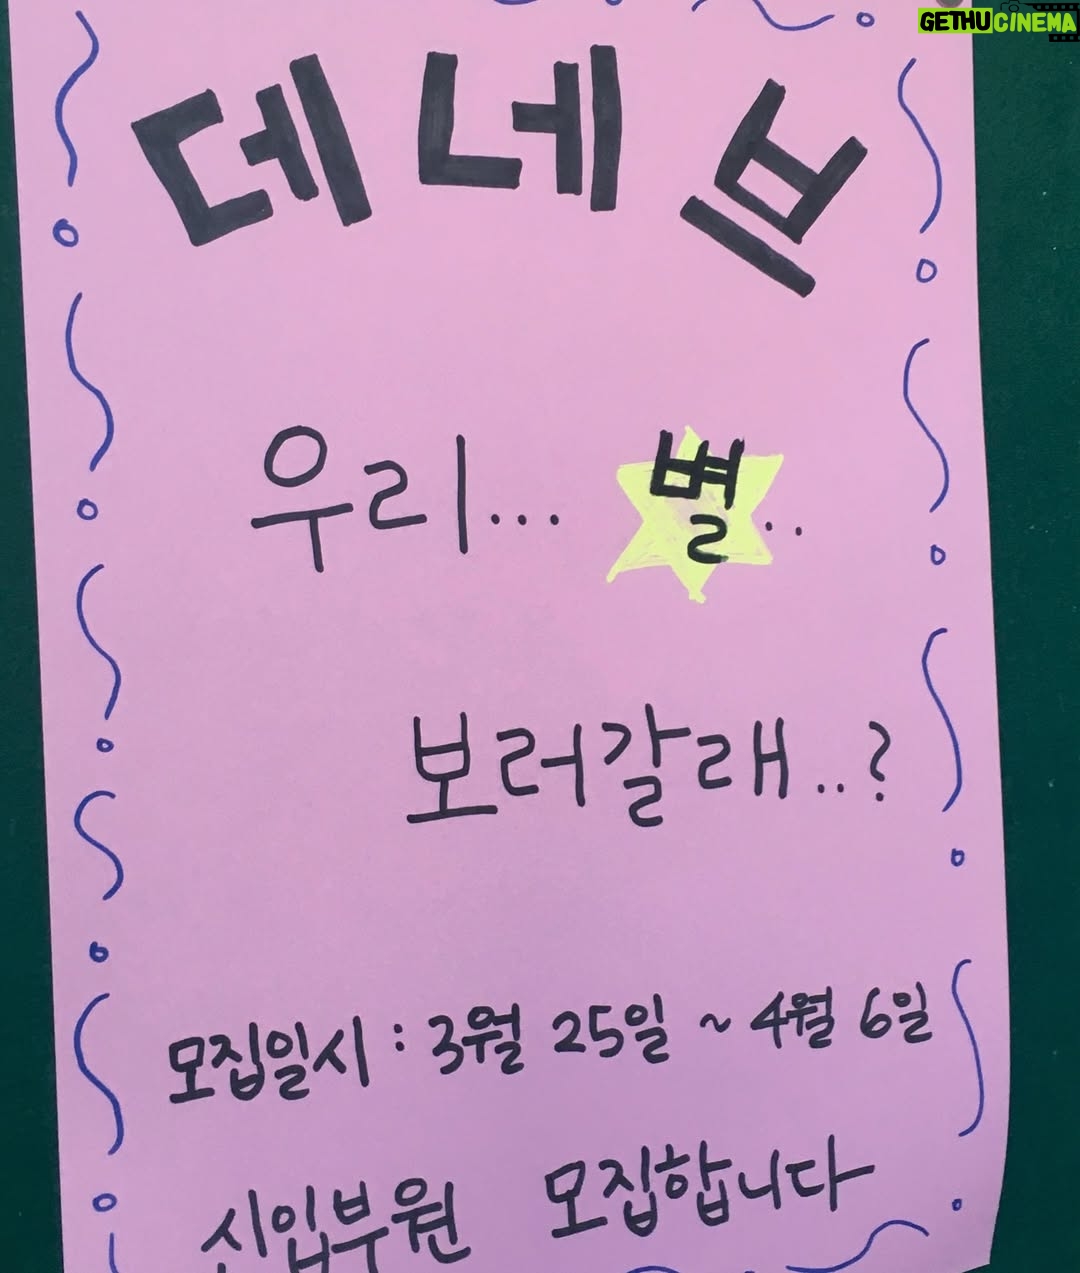 GETHUCINEMA
데네브
우리... 별..
보러갈래..?
모집일시 : 3월 25일 ~ 4월 6일
신입부원 모집합니다